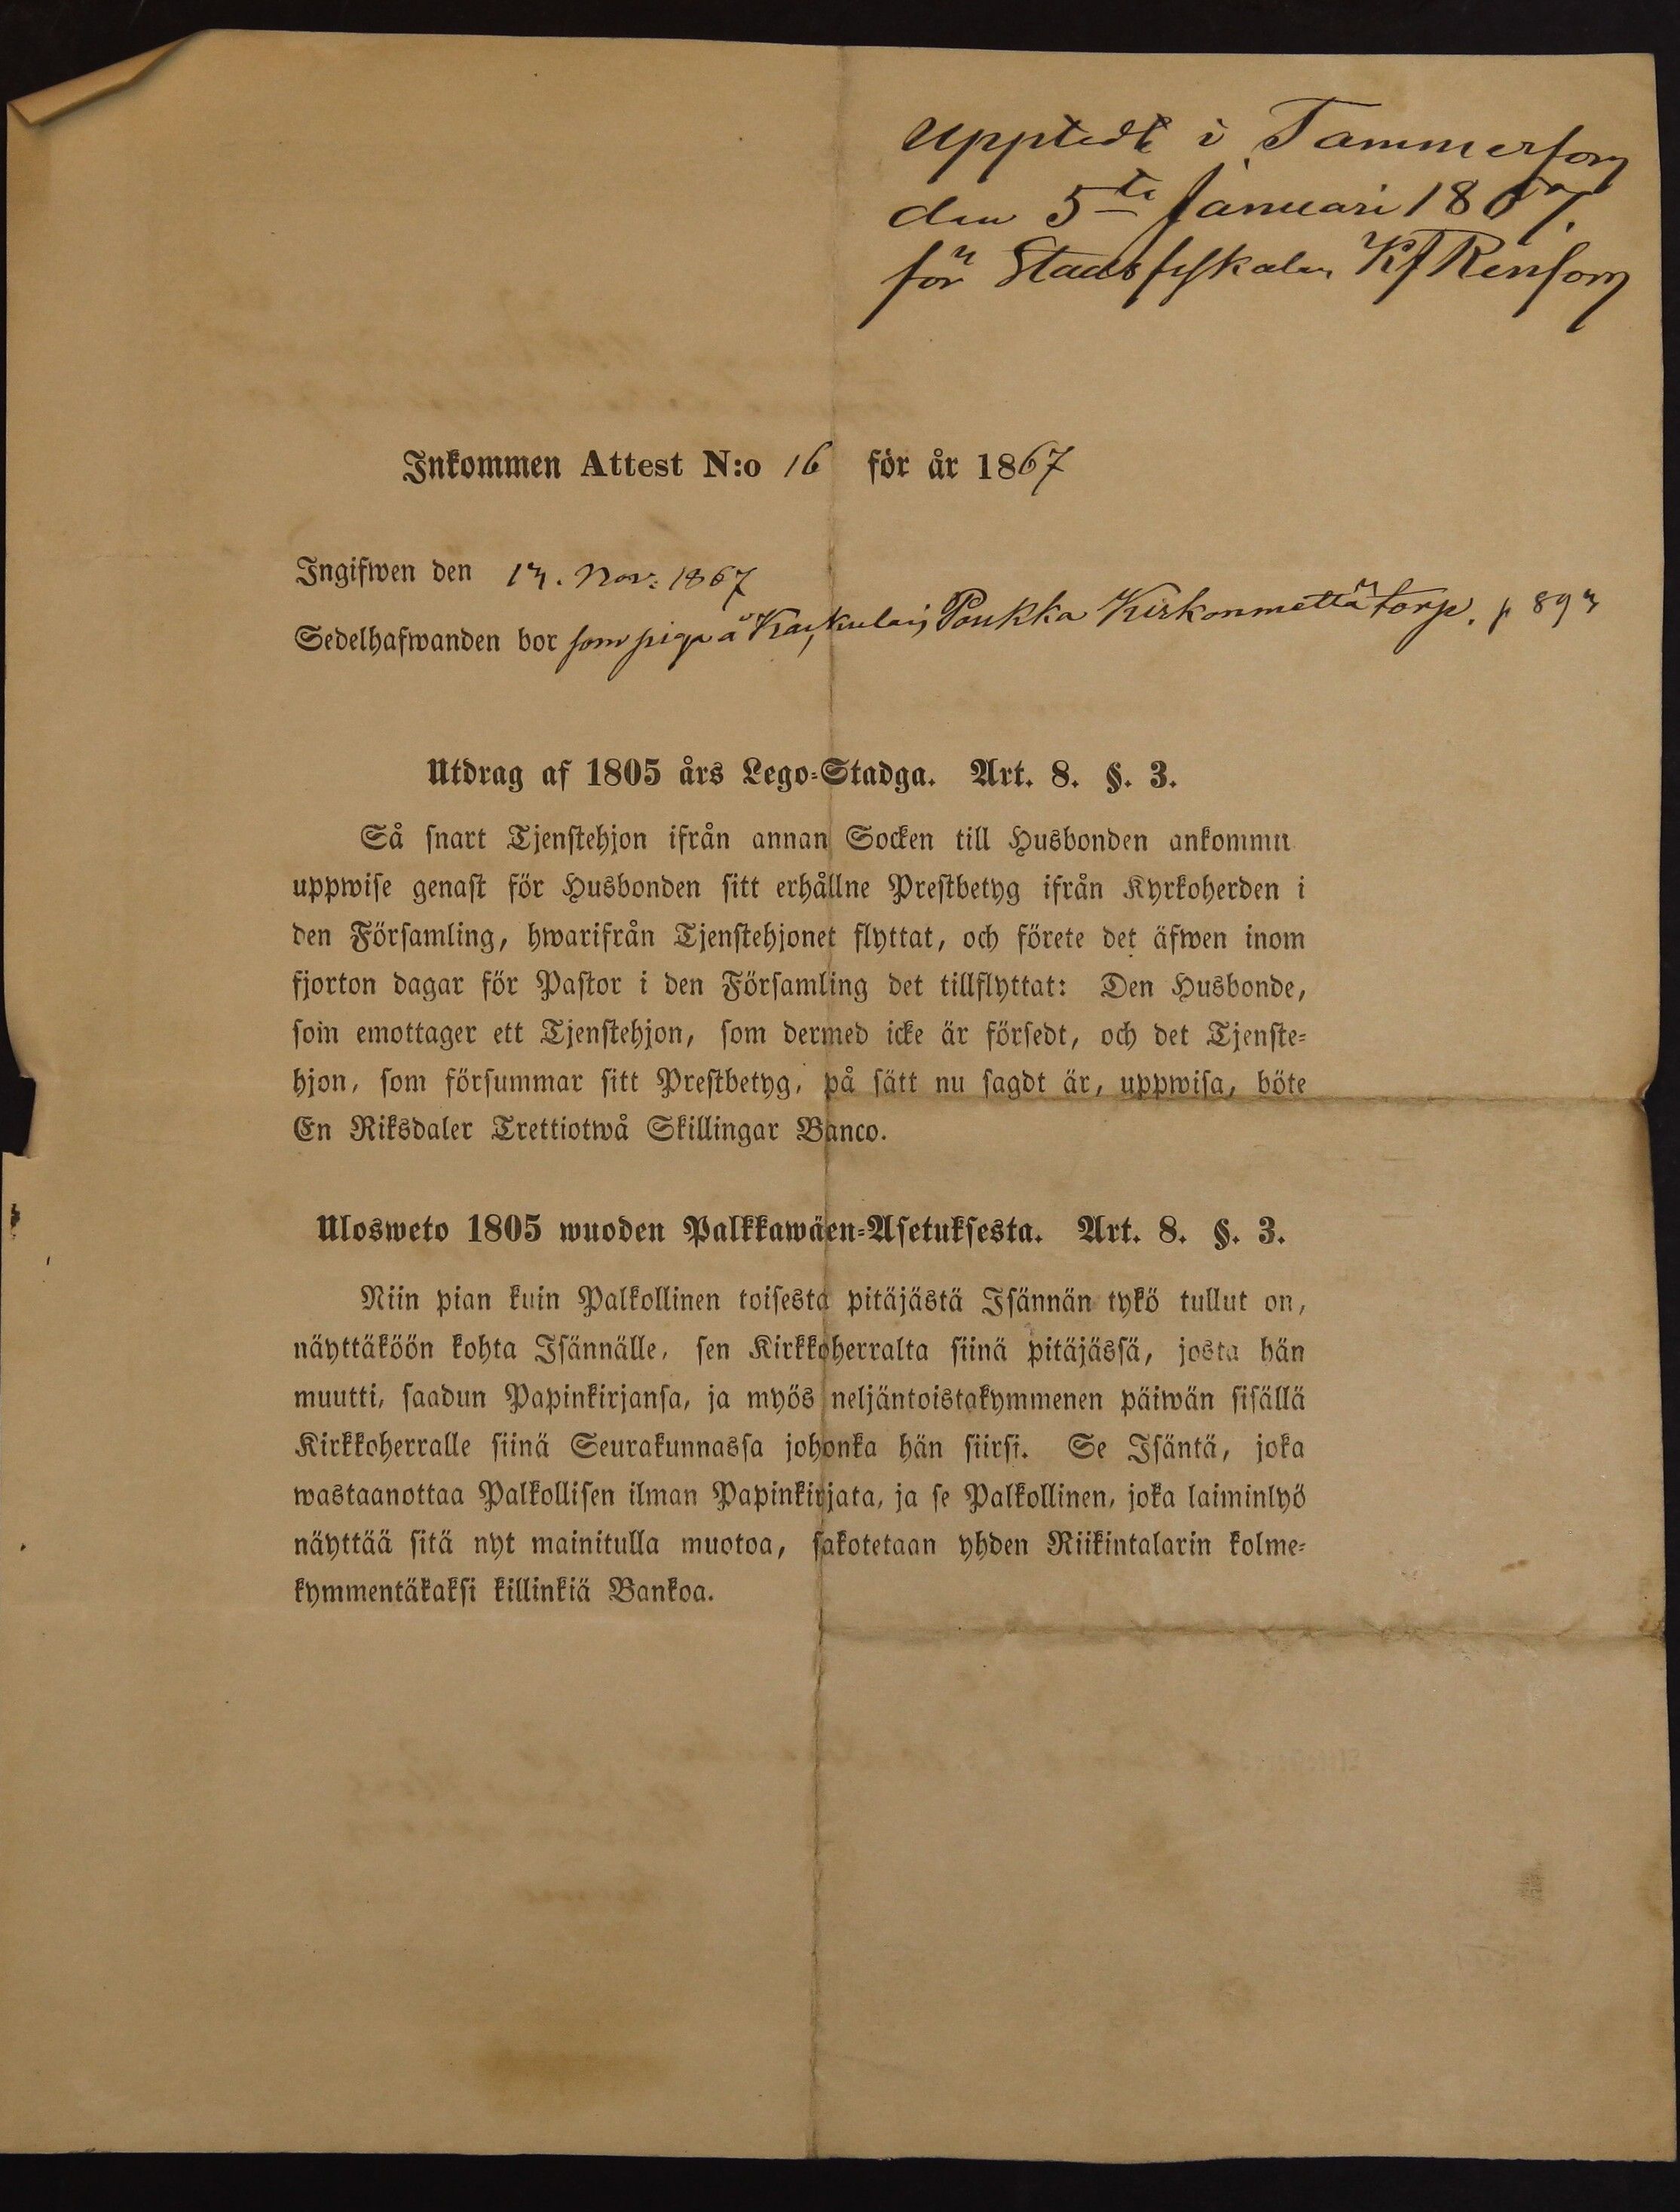 Upptedt i Tammerfors
den 5te Januari 1867.
för Stadsfiskalen KfRenfors
Inkommen Attest N:o 16 för år 1867
Ingifwen den 13. Nov: 1867
Sedelhafwanden bor som piga å Poukka Kirkonmettä torp. p 893
Utdrag af 1805 års Lego-Stadga. Art. 8. §. 3.
Så snart Tjenstehjon ifrån annan Socken till Husbonden ankommit
uppwise genast för Husbonden sitt erhållne Prestbetyg ifrån Kyrkoherden i
den Församling, hwarifrån Tjenstehjonet flyttat, och förete det äfwen inom
fjorton dagar för Pastor i den Församling det tillflyttat: Den Husbonde,
som emottager ett Tjenstehjon, som dermed icke är försedt, och det Tjenste-
hjon, som försummar sitt Prestbetyg, på sätt nu sagdt är, uppwisa, böte
En Riksdaler Trettiotwå Skillingar Banco.
Ulosweto 1805 wuoden Palkkawäen-Asetuksesta. Art. 8. §. 3.
Niin pian kuin Palkollinen toisesta pitäjästä Isännän tykö tullut on,
näyttäköön kohta Isännälle, sen Kirkkoherralta siinä pitäjässä, josta hän
muutti, saadun Papinkirjansa, ja myös neljäntoistakymmenen päiwän sisällä
Kirkkoherralle siinä Seurakunnassa johonka hän siirsi. Se Isäntä, joka
wastaanottaa Palkollisen ilman Papinkirjata, ja se Palkollinen, joka laiminlyö
näyttää sitä nyt mainitulla muotoa, sakotetaan yhden Riikintalarin kolme-
kymmentäkaksi killinkiä Bankoa.